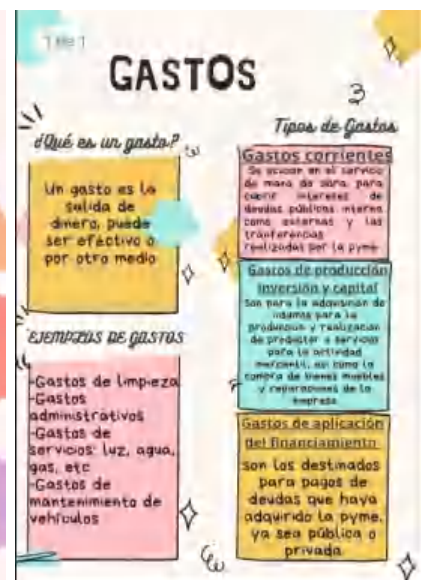 1 de 1
GASTOS
3
¿Qué es un gasto?
Un gasto es la
salida de
dinero, puede
ser efectivo o
por otro medio
EJEMPLOS DE GASTOS
-Gastos de limpieza
-Gastos
administrativos
-Gastos de
servicios: luz, agua,
gas, etc
-Gastos de
mantenimiento de
vehículos
Tipos de Gastos
Gastos corrientes
Se ocupan en el servicio
de mano de obra, para
cubrir intereses de
deudas públicas interna
como externas y las
tranferencias
realizadas por la pyme
Gastos de producción
inversión y capital
Son para la adquisición de
insumos para la
producción y realización
de productor o servicios
para la actividad
mercantil, así como la
compra de bienes muebles
y reparaciones de la
empresa
Gastos de aplicación
del financiamiento
son los destinados
para pagos de
deudas que haya
adquirido la pyme,
ya sea pública o
privada